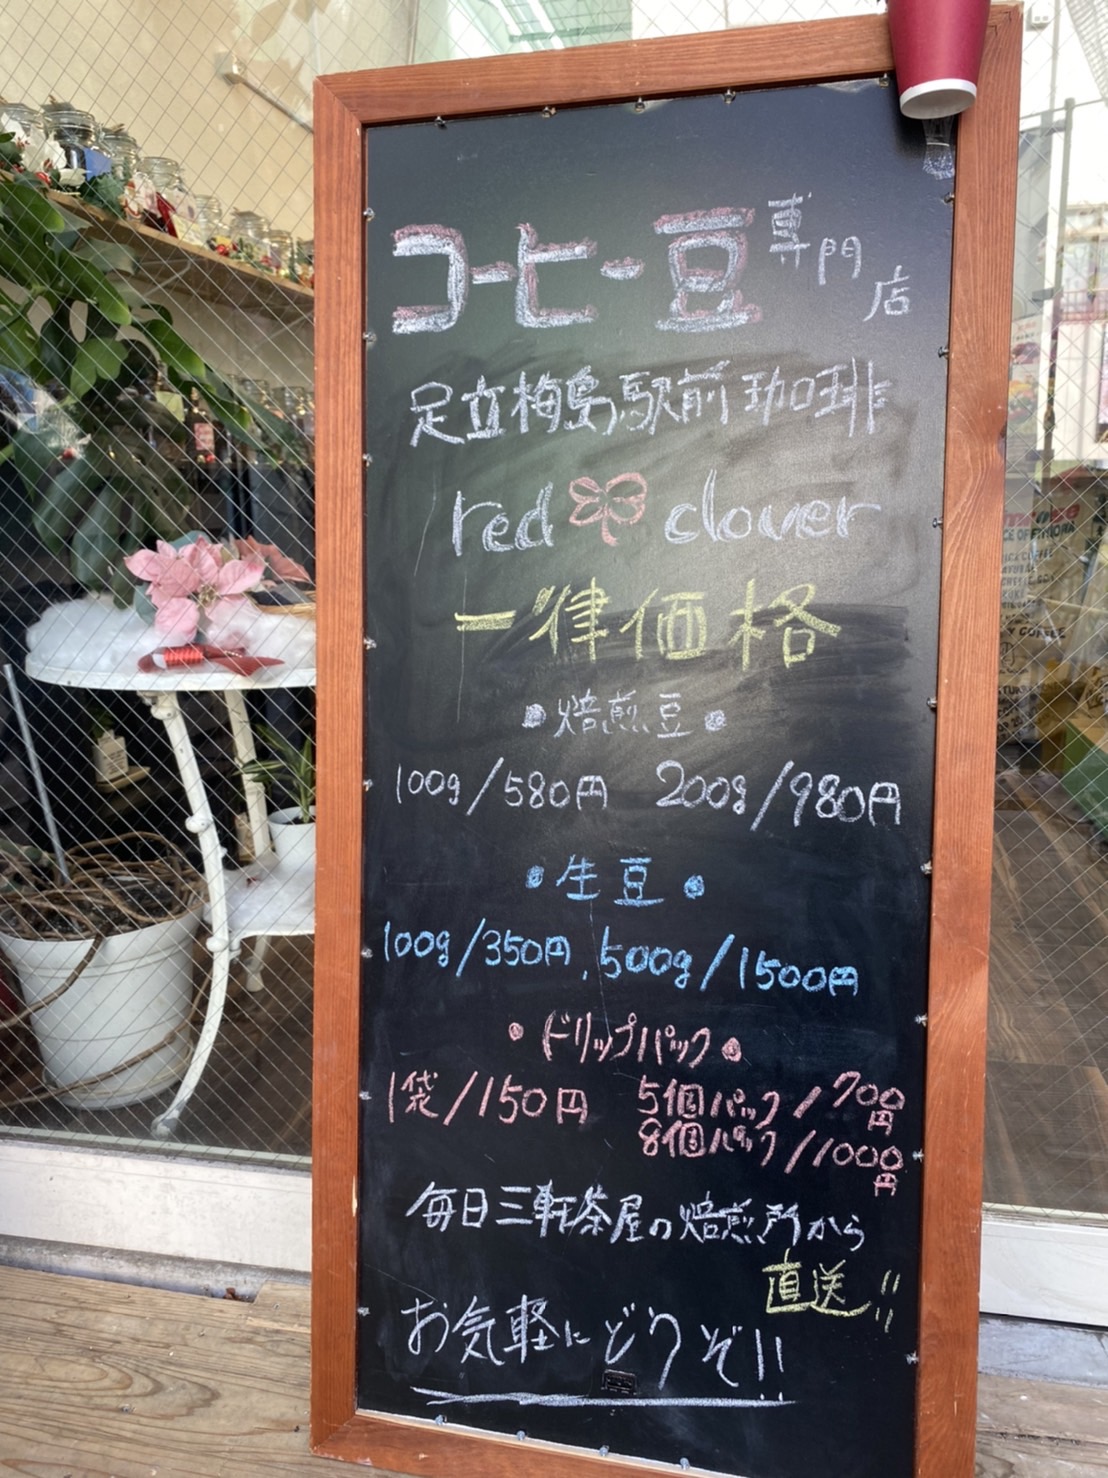 コーヒー豆専門店
足立梅島駅前珈琲
red clover
一律価格
・焙煎豆・
100g/580円 200g/980円
・生豆・
100g/350円, 500g/1500円
・ドリップパック・
1袋/150円 5個パック/700円
8個パック/1000円
毎日三軒茶屋の焙煎所から
直送!!
お気軽にどうぞ!!